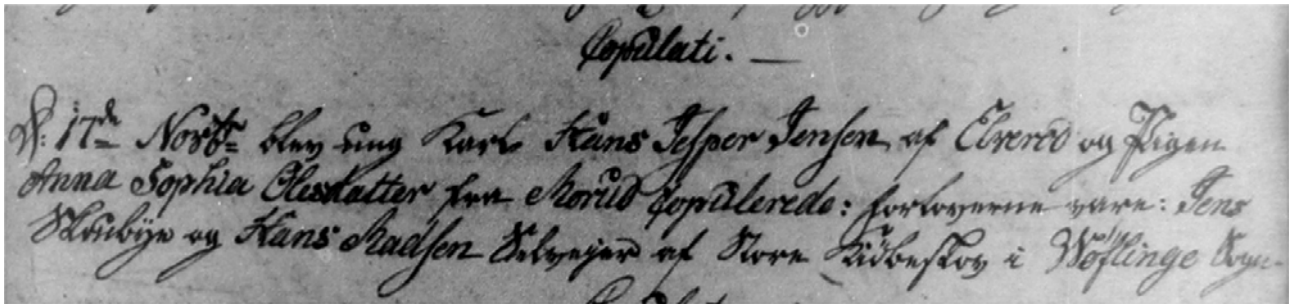 Copulati. —
D: 17de Novbr blev ung Karl Hans Jesper Jensen af Elvered og Pigen
Anna Sophia Olesdatter fra Morud Copulerede: forloverne vare: Jens
Skoubÿe og Hans Madsen Selvejer af Store i Wöflinge Sogn